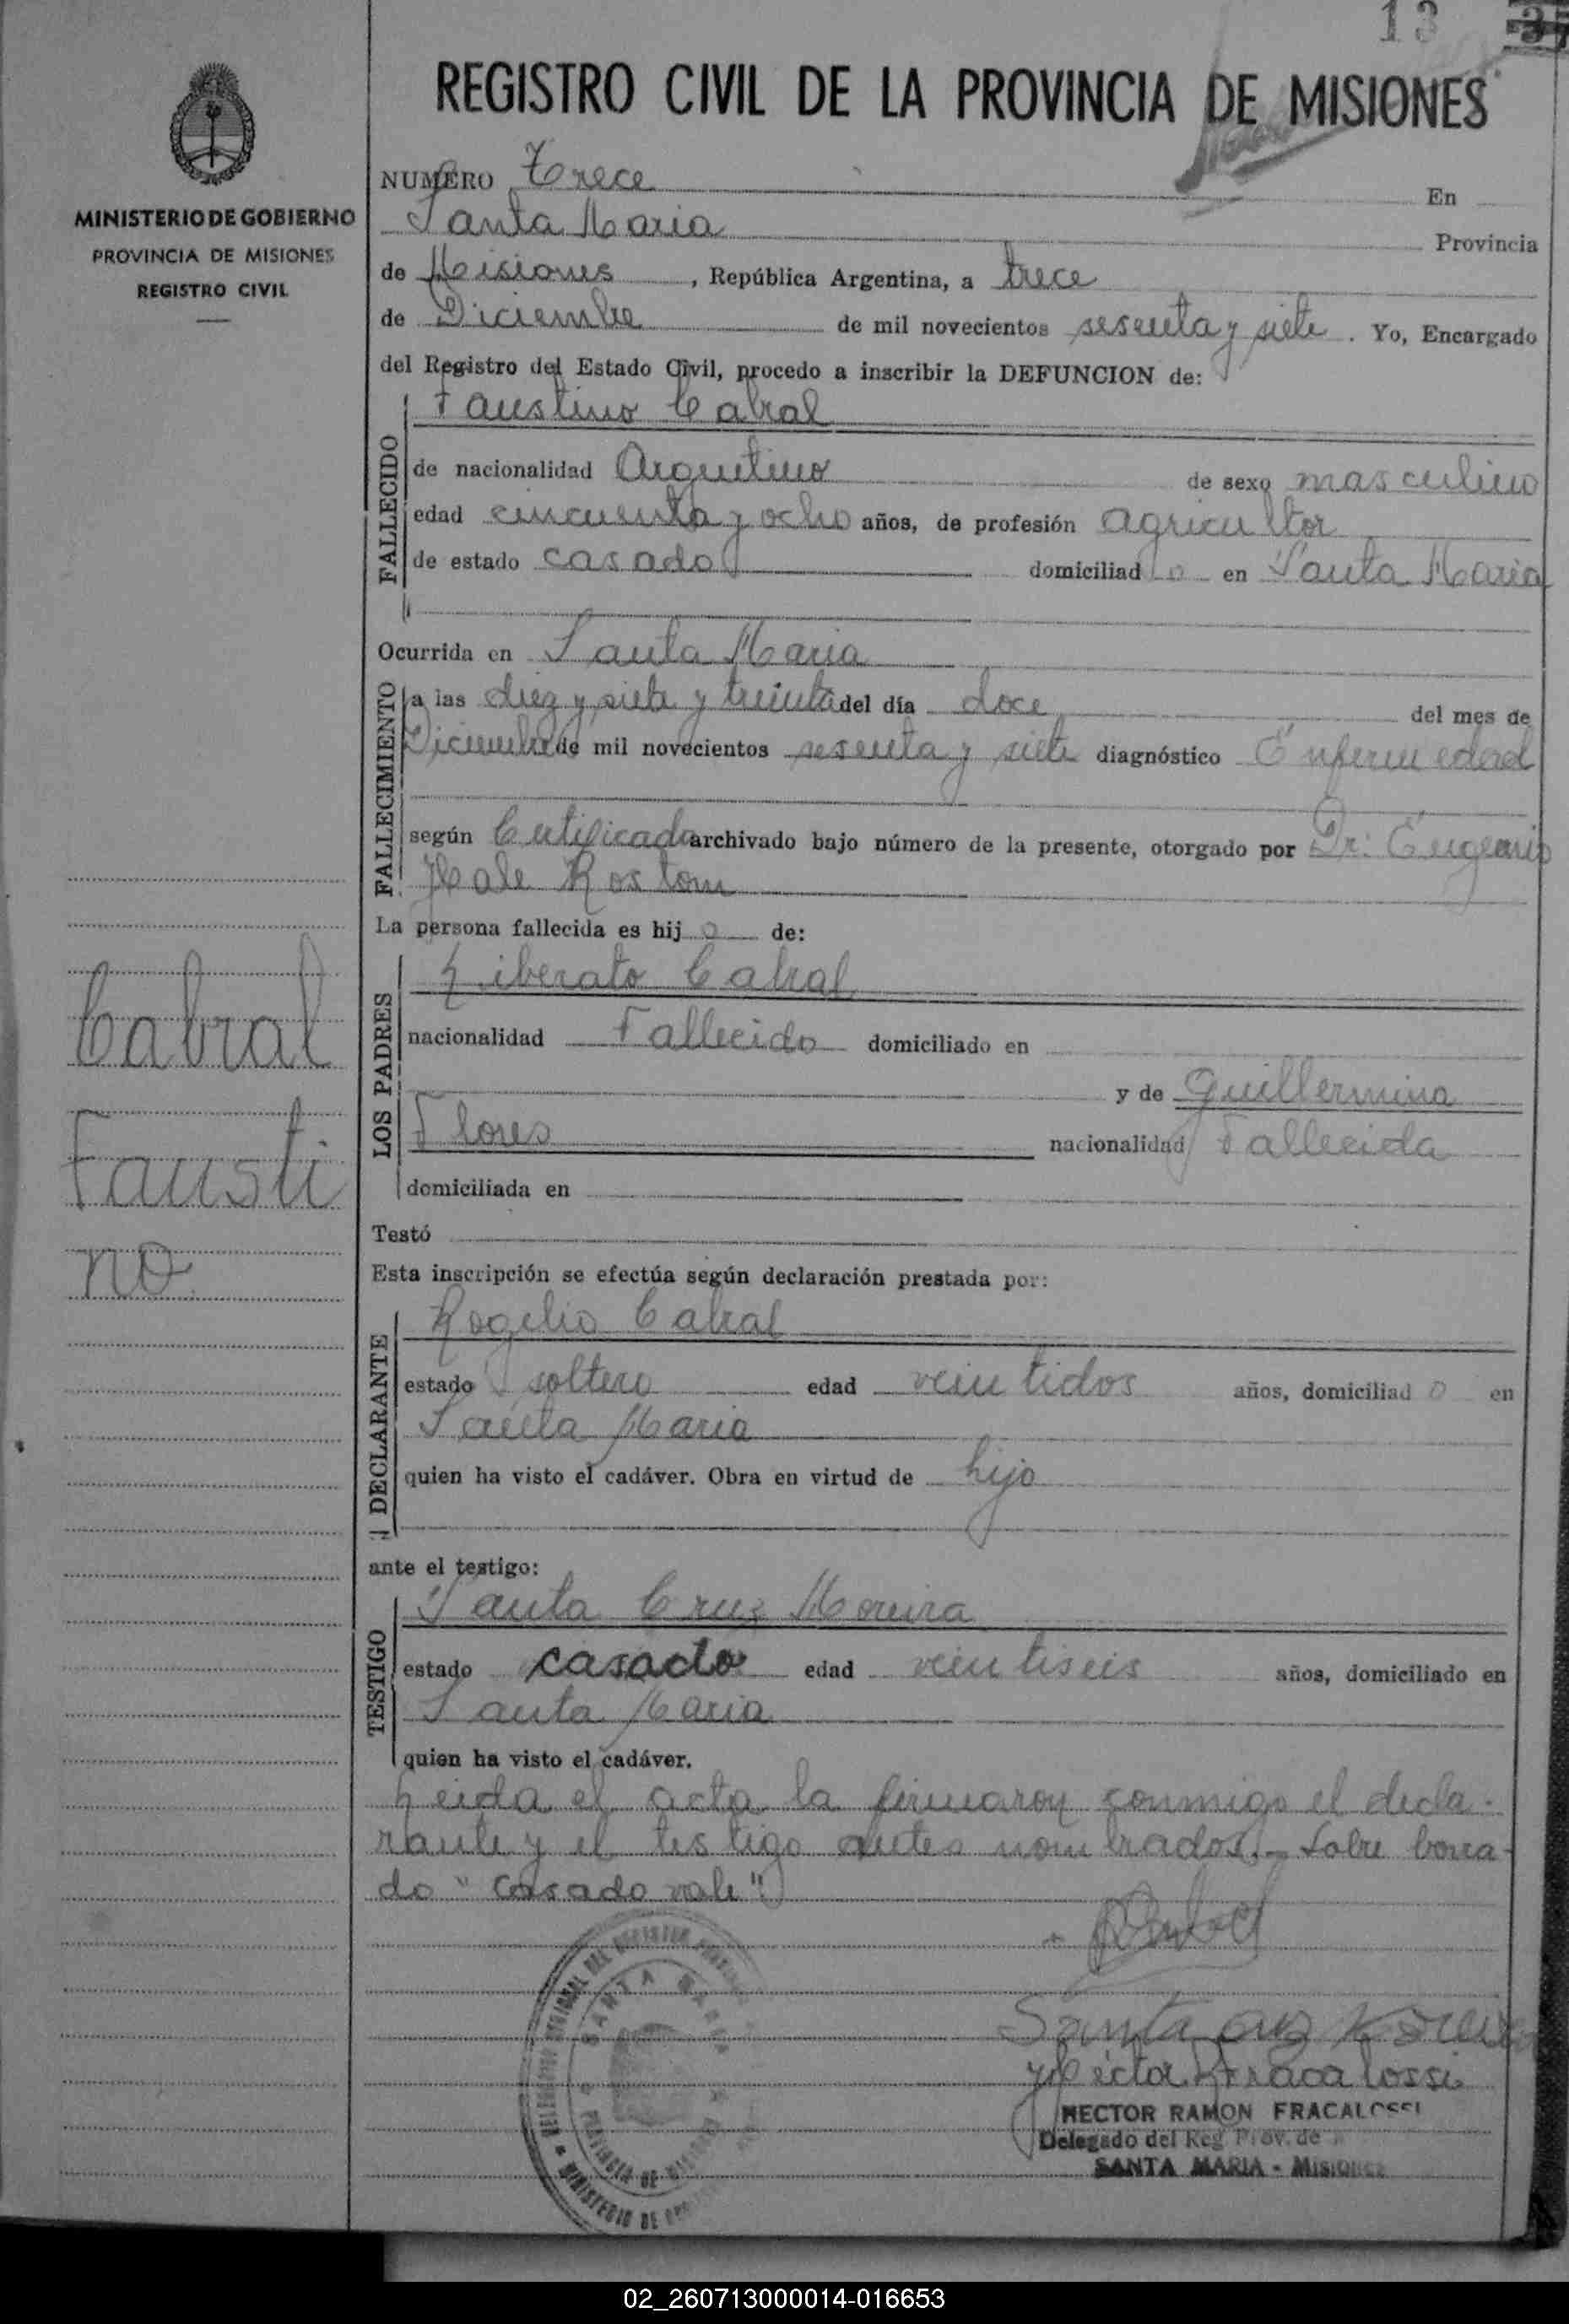 13
REGISTRO CIVIL DE LA PROVINCIA DE MISIONES
MINISTERIO DE GOBIERNO
PROVINCIA DE MISIONES
REGISTRO CIVIL
NUMERO Trece En
Santa Maria Provincia
de Misiones, República Argentina, a trece
de Diciembre de mil novecientos sesenta y siete. Yo, Encargado
del Registro del Estado Civil, procedo a inscribir la DEFUNCION de:
FALLECIDO
Faustino Cabral
de nacionalidad Argentino de sexo masculino
edad cincuenta y ocho años, de profesión agricultor
de estado casado domiciliado en Santa Maria
Ocurrida en Santa Maria
FALLECIMIENTO
a las diez y siete y treinta del día doce del mes de
Diciembre de mil novecientos sesenta y siete diagnóstico Enfermedad
según Certificado archivado bajo número de la presente, otorgado por Dr. Eugenio
Rostom
La persona fallecida es hijo de:
LOS PADRES
Liberato Cabral
nacionalidad Fallecido domiciliado en
y de Guillermina
Flores nacionalidad Fallecida
domiciliada en
Testó
Esta inscripción se efectúa según declaración prestada por:
DECLARANTE
Rogelio Cabral
estado soltero edad veintidos años, domiciliado en
Santa Maria
quien ha visto el cadáver. Obra en virtud de hijo
ante el testigo:
TESTIGO
Santa Cruz Moreira
estado casado edad veintiseis años, domiciliado en
Santa Maria
quien ha visto el cadáver.
Leida el acta la firmaron conmigo el decla-
rante y el testigo antes nombrados.- Sobre borra-
do "casado vale"
Cabral
Fausti
no
SANTA MARIA
PROVINCIA DE MISIONES
MINISTERIO DE
Santa cruz Moreira
Hector R Fracalossi
HECTOR RAMON FRACALOSSI
Delegado del Reg. Prov. de
SANTA MARIA - MISIONES
02_260713000014-016653